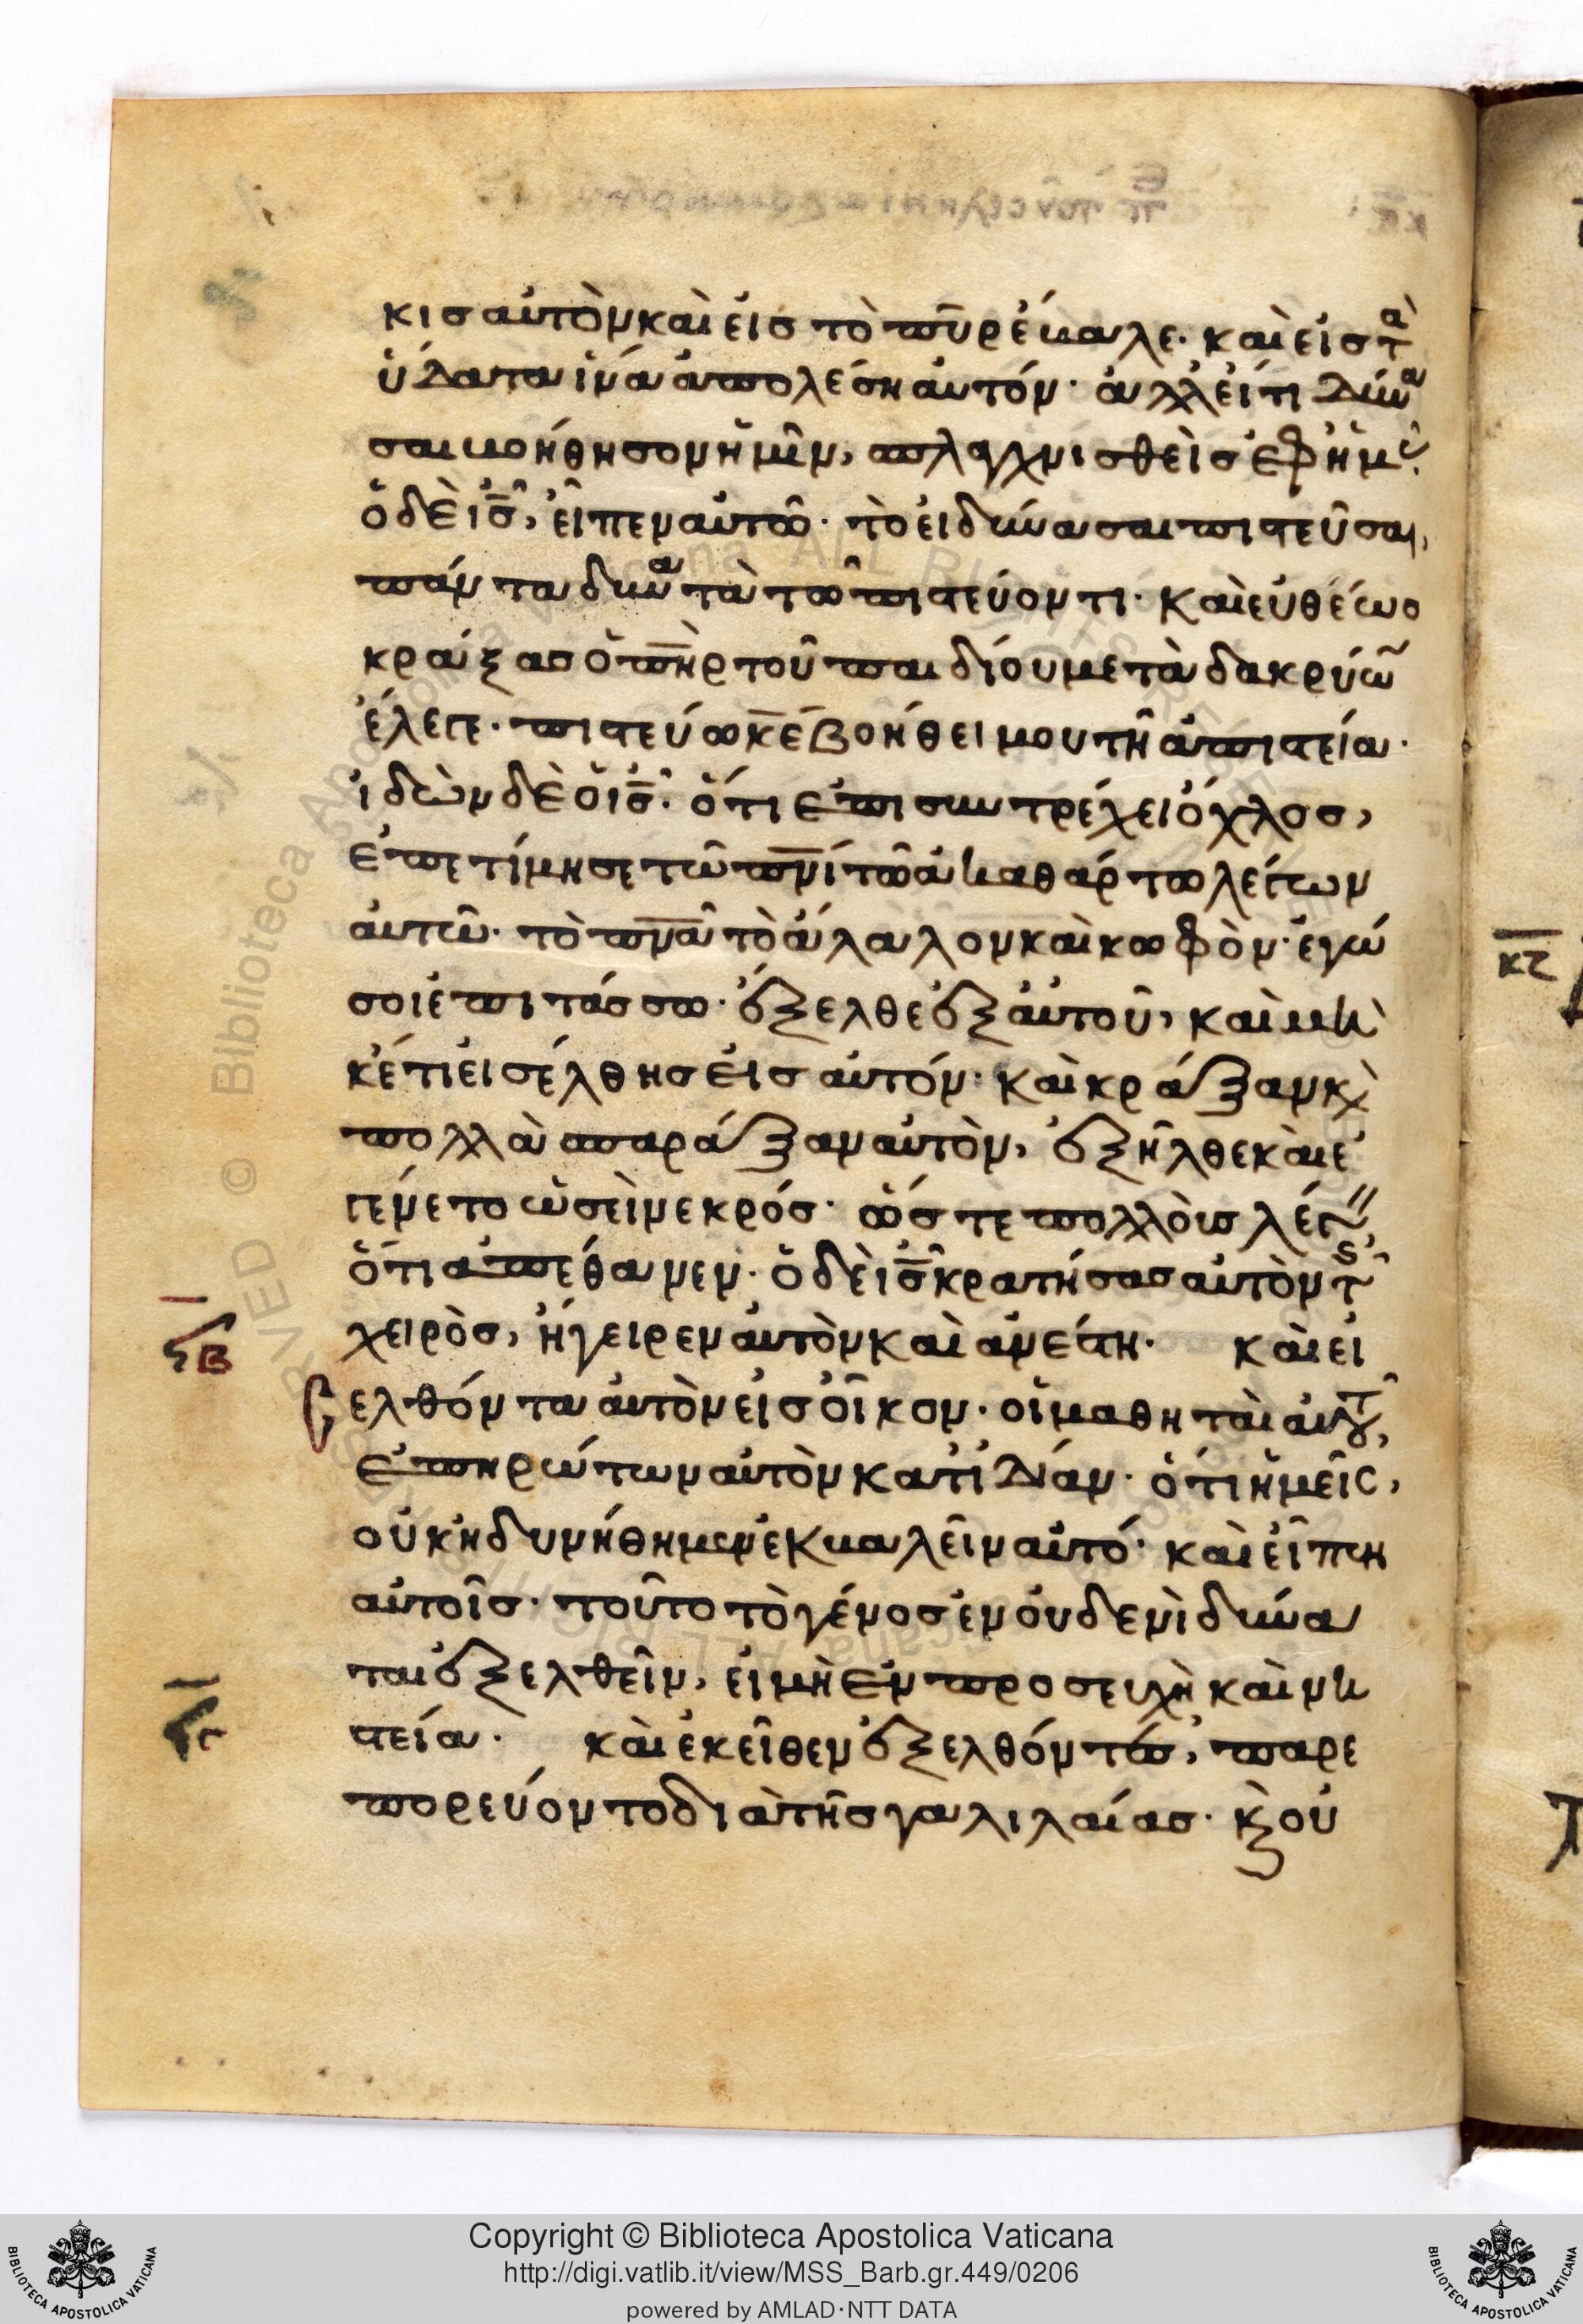 κις αὐτὸν καὶ εἰς τὸ πῦρ ἔβαλε· καὶ εἰς τὰ
ὕδατα ἵνα ἀπολέση αὐτόν· ἀλλ' εἴ τι δύνα
σαι βοήθησον ἡμῖν, σπλαγχνισθεὶς ἐφ' ἡμᾶς·
ὁ δὲ ις, εἶπεν αὐτῶ· τὸ εἰ δύνασαι πιστεῦσαι,
πάντα δυνατὰ τῶ πιστεύοντι· καὶ εὐθέως
κράξας ὁ πηρ τοῦ παιδίου μετὰ δακρύων
ἔλεγε· πιστεύω κε βοήθει μου τῆ ἀπιστεία·
ἰδὼν δὲ ὁ ις· ὅτι ἐπισυντρέχει ὄχλος,
ἐπετίμησε τῶ πνι τῶ ἀκαθάρτω λέγων
αὐτῶ· τὸ πνα τὸ ἄλαλον καὶ κωφὸν· ἐγώ
σοι ἐπιτάσσω· ἔξελθε ἐξ αὐτοῦ, καὶ μη
κέτι εἰσέλθης εἰς αὐτόν· καὶ κράξαν κ
πολλὰ σπαράξαν αὐτὸν, ἐξῆλθε καὶ ἐ
γένετο ὡσεὶ νεκρός· ὥστε πολλοὺς λέγειν
ὅτι ἀπέθανεν· ὁ δὲ ις κρατήσας αὐτὸν τῆς
χειρὸς, ἤγειρεν αὐτὸν καὶ ἀνέστη· καὶ εἰ
ξβ
σελθόντα αὐτὸν εἰς οἶκον· οἱ μαθηταὶ αὐτοῦ,
ἐπηρώτων αὐτὸν κατ' ἰδίαν· ὅτι ἡμεῖς,
οὐκ ἠδυνήθημεν ἐκβαλεῖν αὐτό· καὶ εἶπεν
αὐτοῖς· τοῦτο τὸ γένος ἐν οὐδενὶ δύνα
ται ἐξελθεῖν, εἰ μὴ ἐν προσευχὴ καὶ νη
στεία· καὶ ἐκεῖθεν ἐξελθόντες, παρε
πορεύοντο διὰ τῆς γαλιλαίας· κ οὐ
κζ
Copyright © Biblioteca Apostolica Vaticana
http://digi.vatlib.it/view/MSS_Barb.gr.449/0206
powered by AMLAD·NTT DATA
BIBLIOTECA APOSTOLICA VATICANA
BIBLIOTECA APOSTOLICA VATICANA